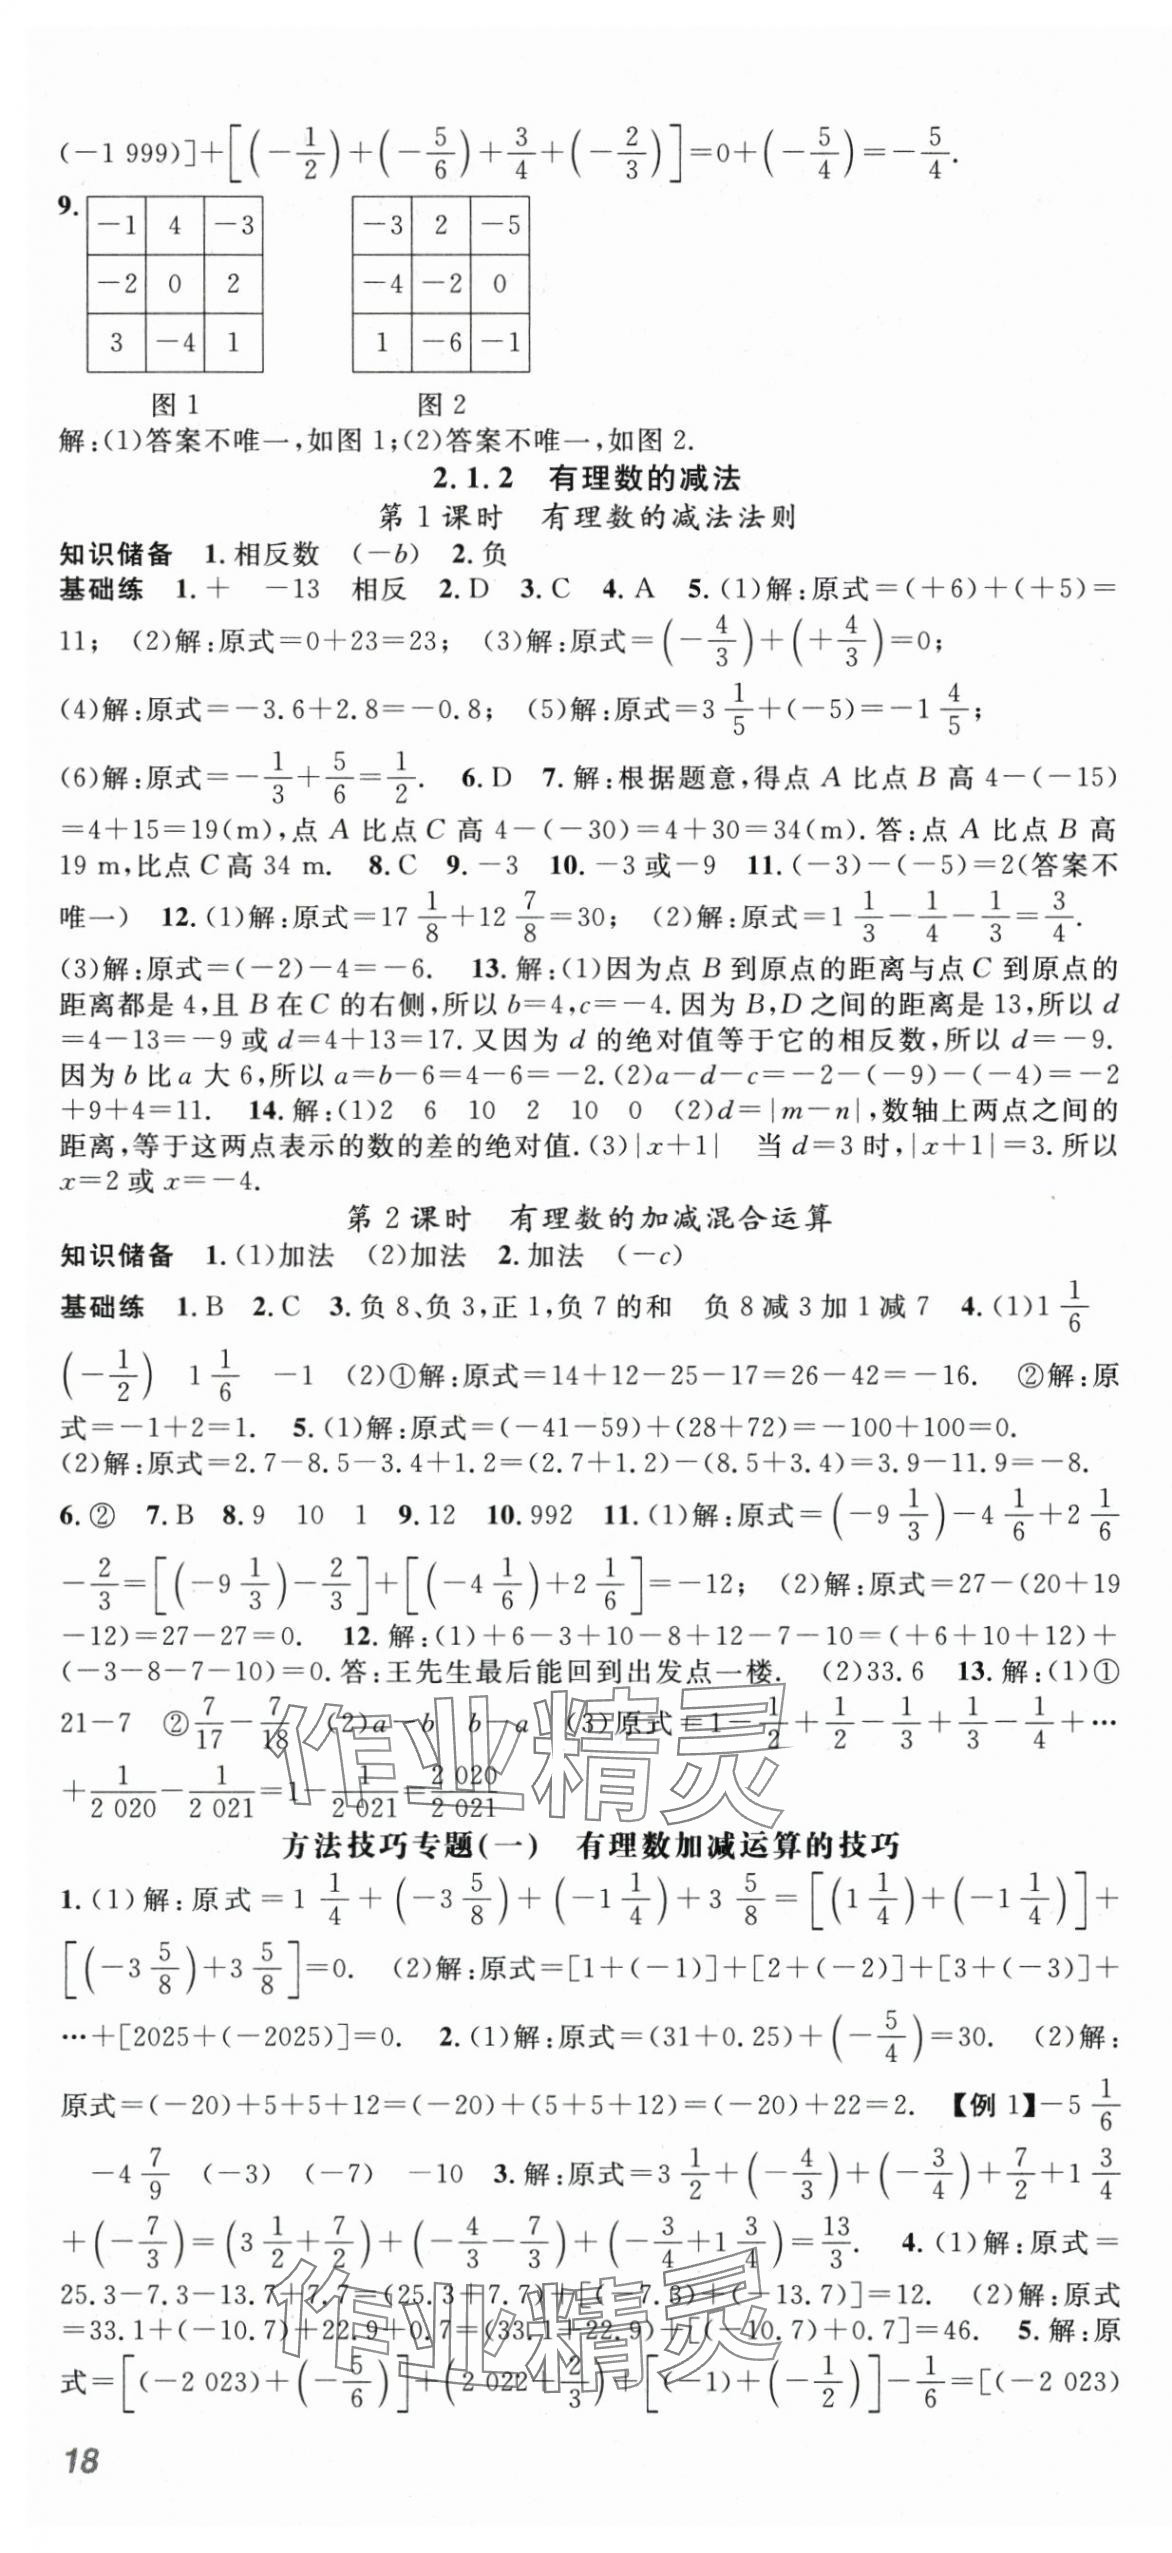 (-1 999)]+[(-1/2)+(-5/6)+3/4+(-2/3)]=0+(-5/4)=-5/4.
9.
-1 4 -3
-2 0 2
3 -4 1
图 1
-3 2 -5
-4 -2 0
1 -6 -1
图 2
解:(1)答案不唯一,如图 1;(2)答案不唯一,如图 2.
2.1.2 有理数的减法
第 1 课时 有理数的减法法则
知识储备 1.相反数 (-b) 2.负
基础练 1.+ -13 相反 2.D 3.C 4.A 5.(1)解:原式=(+6)+(+5)=
11; (2)解:原式=0+23=23; (3)解:原式=(-4/3)+(+4/3)=0;
(4)解:原式=-3.6+2.8=-0.8; (5)解:原式=3 1/5+(-5)=-1 4/5;
(6)解:原式=-1/3+5/6=1/2. 6.D 7.解:根据题意,得点 A 比点 B 高 4-(-15)
=4+15=19(m),点 A 比点 C 高 4-(-30)=4+30=34(m).答:点 A 比点 B 高
19 m,比点 C 高 34 m. 8.C 9.-3 10.-3 或-9 11.(-3)-(-5)=2(答案不
唯一) 12.(1)解:原式=17 1/8+12 7/8=30; (2)解:原式=1 1/3-1/4-1/3=3/4.
(3)解:原式=(-2)-4=-6. 13.解:(1)因为点 B 到原点的距离与点 C 到原点的
距离都是 4,且 B 在 C 的右侧,所以 b=4,c=-4.因为 B,D 之间的距离是 13,所以 d
=4-13=-9 或 d=4+13=17.又因为 d 的绝对值等于它的相反数,所以 d=-9.
因为 b 比 a 大 6,所以 a=b-6=4-6=-2.(2)a-d-c=-2-(-9)-(-4)=-2
+9+4=11. 14.解:(1)2 6 10 2 10 0 (2)d=|m-n|,数轴上两点之间的
距离,等于这两点表示的数的差的绝对值.(3)|x+1| 当 d=3 时,|x+1|=3.所以
x=2 或 x=-4.
第 2 课时 有理数的加减混合运算
知识储备 1.(1)加法 (2)加法 2.加法 (-c)
基础练 1.B 2.C 3.负 8、负 3,正 1,负 7 的和 负 8 减 3 加 1 减 7 4.(1)1 1/6
(-1/2) 1 1/6 -1 (2)①解:原式=14+12-25-17=26-42=-16. ②解:原
式=-1+2=1. 5.(1)解:原式=(-41-59)+(28+72)=-100+100=0.
(2)解:原式=2.7-8.5-3.4+1.2=(2.7+1.2)-(8.5+3.4)=3.9-11.9=-8.
6.② 7.B 8.9 10 1 9.12 10.992 11.(1)解:原式=(-9 1/3)-4 1/6+2 1/6
-2/3=[(-9 1/3)-2/3]+[(-4 1/6)+2 1/6]=-12; (2)解:原式=27-(20+19
-12)=27-27=0. 12.解:(1)+6-3+10-8+12-7-10=(+6+10+12)+
(-3-8-7-10)=0.答:王先生最后能回到出发点一楼. (2)33.6 13.解:(1)①
21-7 ②7/17-7/18 (2)a-b b-a (3)原式=1-1/2+1/2-1/3+1/3-1/4+…
+1/2 020-1/2 021=1-1/2 021=2 020/2 021
方法技巧专题(一) 有理数加减运算的技巧
1.(1)解:原式=1 1/4+(-3 5/8)+(-1 1/4)+3 5/8=[(1 1/4)+(-1 1/4)]+
[(-3 5/8)+3 5/8]=0. (2)解:原式=[1+(-1)]+[2+(-2)]+[3+(-3)]+
…+[2025+(-2025)]=0. 2.(1)解:原式=(31+0.25)+(-5/4)=30. (2)解:
原式=(-20)+5+5+12=(-20)+(5+5+12)=(-20)+22=2. 【例 1】-5 1/6
-4 7/9 (-3) (-7) -10 3.解:原式=3 1/2+(-4/3)+(-3/4)+7/2+1 3/4
+(-7/3)=(3 1/2+7/2)+(-4/3-7/3)+(-3/4+1 3/4)=13/3. 4.(1)解:原式=
25.3-7.3-13.7+7.7=(25.3+7.7)+[(-7.3)+(-13.7)]=12. (2)解:原式
=33.1+(-10.7)+22.9+0.7=(33.1+22.9)+[(-10.7)+0.7]=46. 5.解:原
式=[(-2 023)+(-5/6)]+(2 022+2/3)+[(-1)+(-1/2)]-1/6=[(-2 023)
18
作业精灵
作业精灵